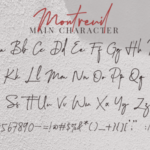 Montreuil
MAIN CHARACTER
Aa Bb Cc Dd Ee Ff Gg Hh
Kk Ll Mm Nn Oo Pp Qq
Ss Tt Uu Vv Ww Xx Yy Zz
567890